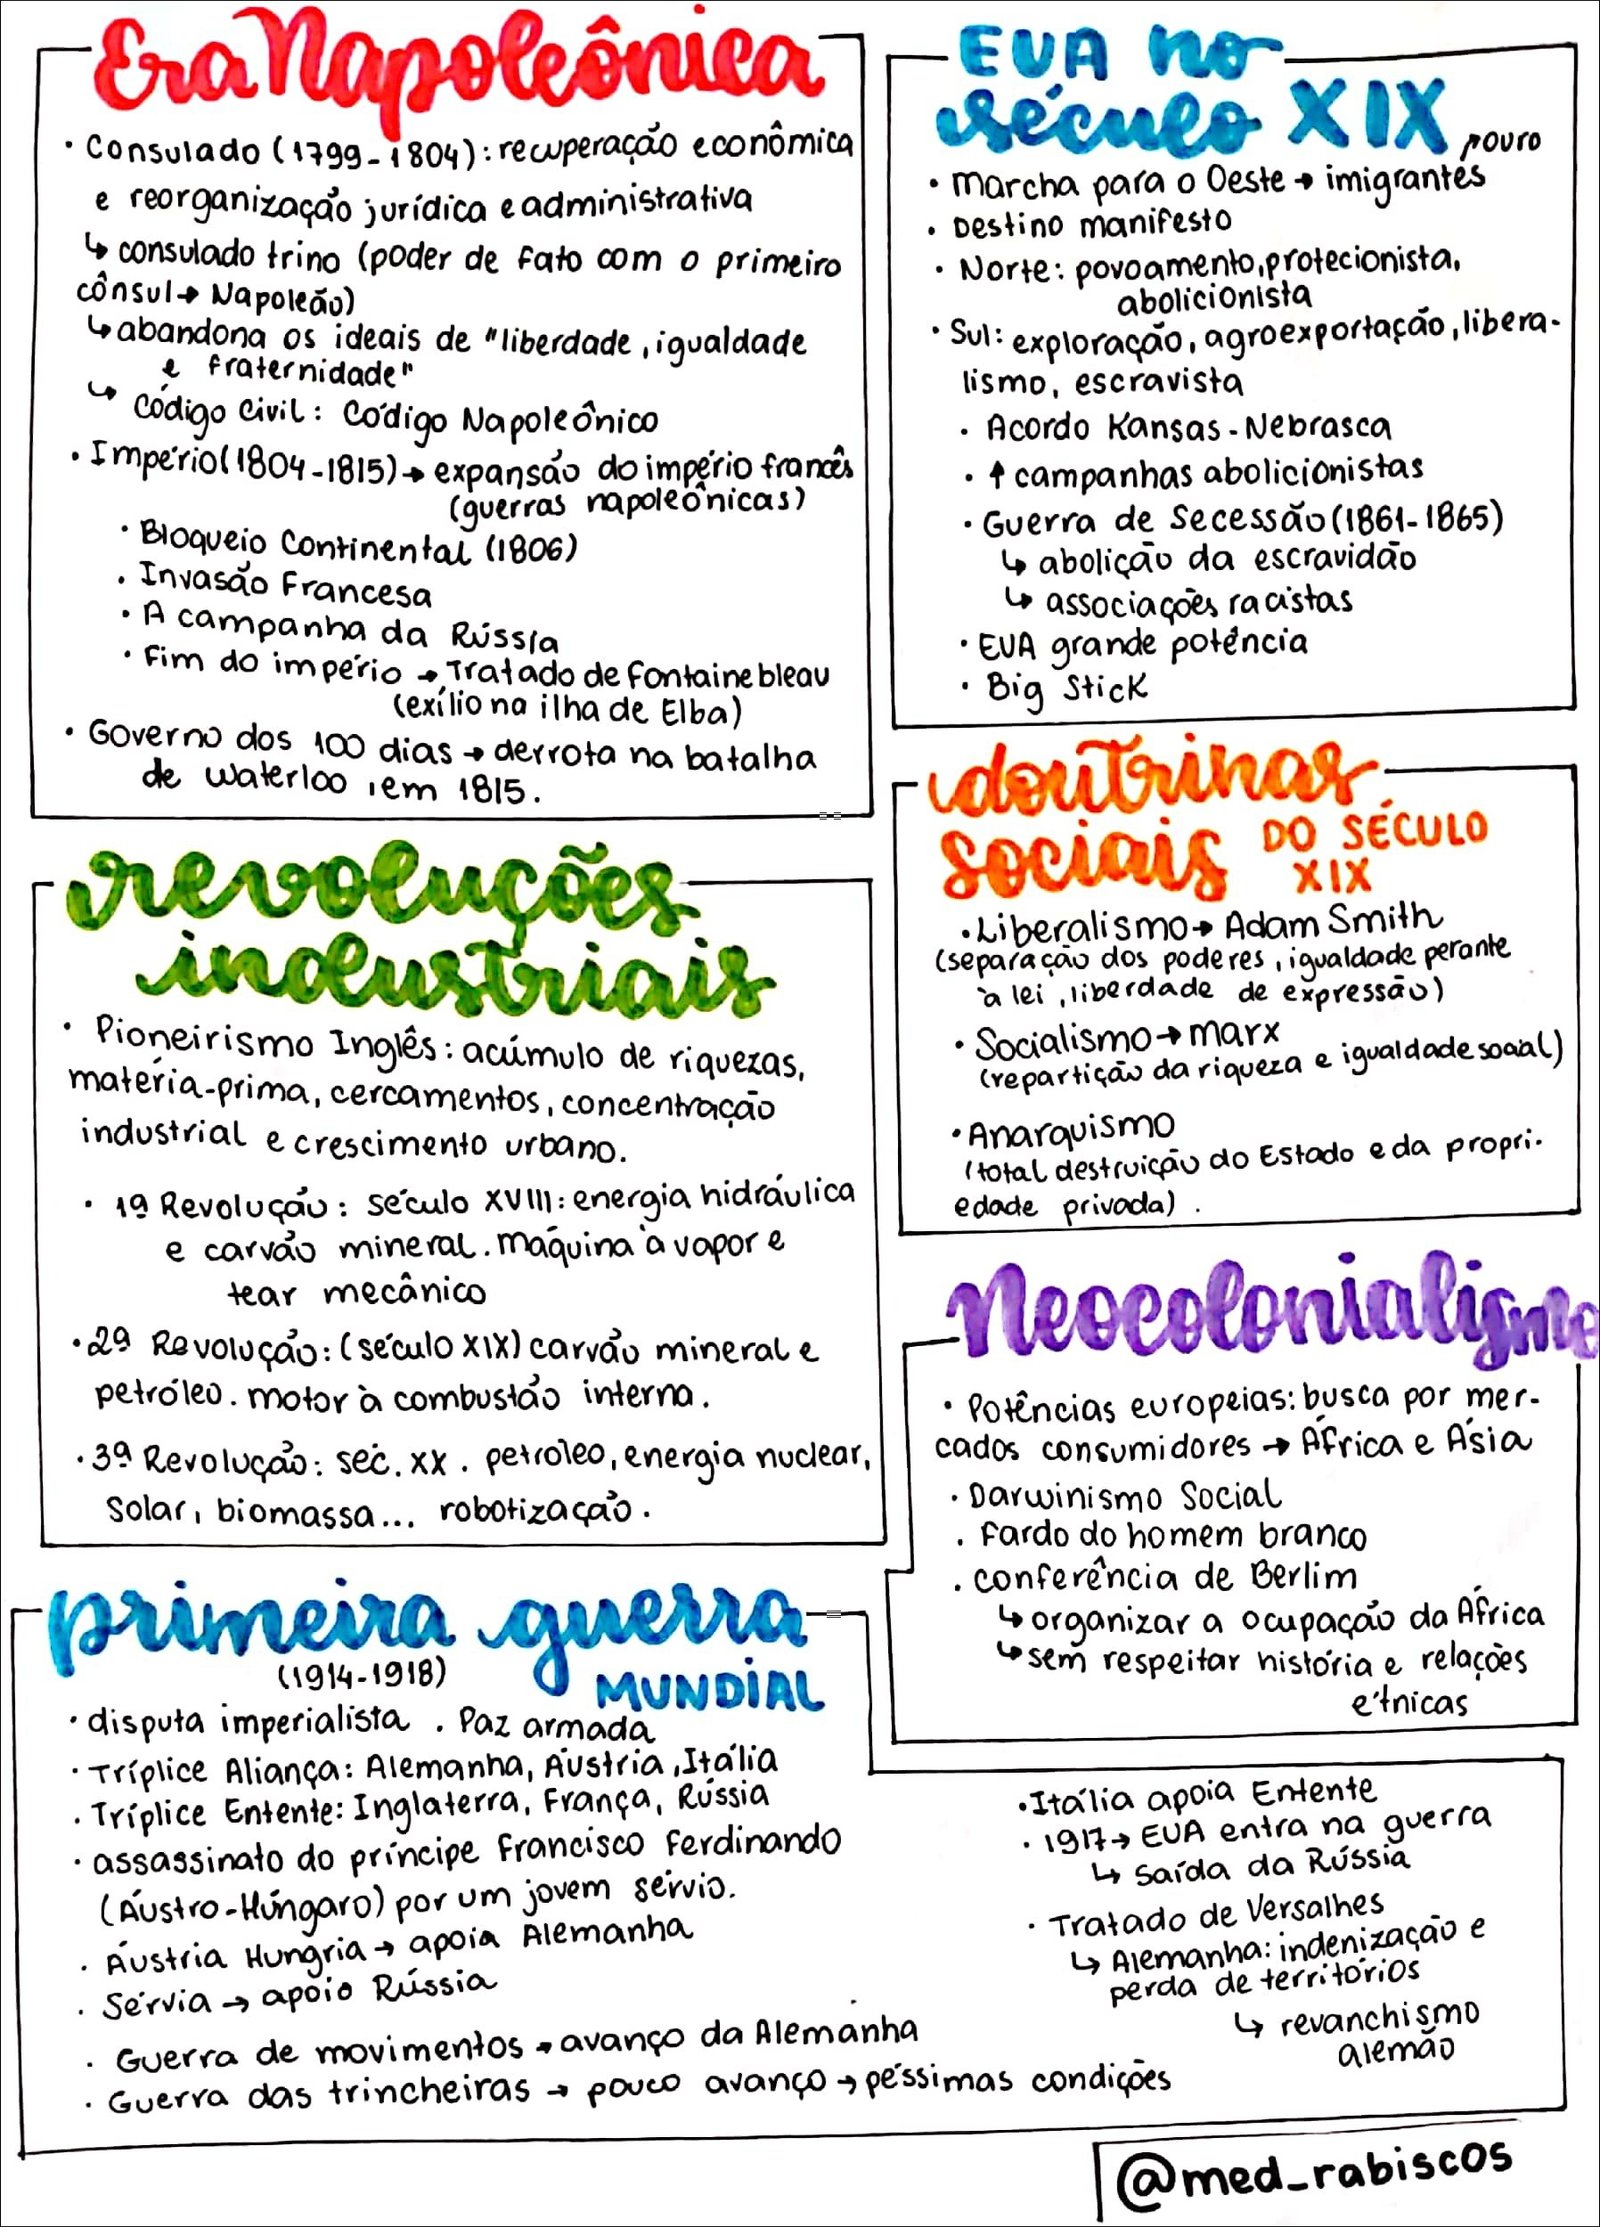 Era Napoleônica
• Consulado (1799-1804): recuperação econômica
e reorganização jurídica e administrativa
↳ consulado trino (poder de fato com o primeiro
cônsul → Napoleão)
↳ abandona os ideais de "liberdade, igualdade
e fraternidade"
↳ Código Civil: Código Napoleônico
• Império (1804-1815) → expansão do império francês
(guerras napoleônicas)
• Bloqueio Continental (1806)
• Invasão Francesa
• A campanha da Rússia
• Fim do império → Tratado de Fontainebleau
(exílio na ilha de Elba)
• Governo dos 100 dias → derrota na batalha
de Waterloo, em 1815.
revoluções
industriais
• Pioneirismo Inglês: acúmulo de riquezas,
matéria-prima, cercamentos, concentração
industrial e crescimento urbano.
• 1ª Revolução: século XVIII: energia hidráulica
e carvão mineral. máquina à vapor e
tear mecânico
• 2ª Revolução: (século XIX) carvão mineral e
petróleo. motor à combustão interna.
• 3ª Revolução: séc. XX. petróleo, energia nuclear,
solar, biomassa... robotização.
EUA no
século XIX
↗ ouro
• Marcha para o Oeste → imigrantes
• Destino manifesto
• Norte: povoamento, protecionista,
abolicionista
• Sul: exploração, agroexportação, libera-
lismo, escravista
• Acordo Kansas-Nebrasca
• ↑ campanhas abolicionistas
• Guerra de Secessão (1861-1865)
↳ abolição da escravidão
↳ associações racistas
• EUA grande potência
• Big Stick
doutrinas
sociais DO SÉCULO
XIX
• Liberalismo → Adam Smith
(separação dos poderes, igualdade perante
à lei, liberdade de expressão)
• Socialismo → Marx
(repartição da riqueza e igualdade social)
• Anarquismo
(total destruição do Estado e da propri-
edade privada).
Neocolonialismo
• Potências europeias: busca por mer-
cados consumidores → África e Ásia
• Darwinismo Social
• Fardo do homem branco
• conferência de Berlim
↳ organizar a ocupação da África
↳ sem respeitar história e relações
étnicas
primeira guerra
MUNDIAL
(1914-1918)
• disputa imperialista . Paz armada
• Tríplice Aliança: Alemanha, Áustria, Itália
• Tríplice Entente: Inglaterra, França, Rússia
• assassinato do príncipe Francisco Ferdinando
(Áustro-Húngaro) por um jovem sérvio.
• Áustria Hungria → apoia Alemanha
• Sérvia → apoio Rússia
• Guerra de movimentos → avanço da Alemanha
• Guerra das trincheiras → pouco avanço → péssimas condições
• Itália apoia Entente
• 1917 → EUA entra na guerra
↳ Saída da Rússia
• Tratado de Versalhes
↳ Alemanha: indenização e
perda de territórios
↳ revanchismo
alemão
@med_rabiscos